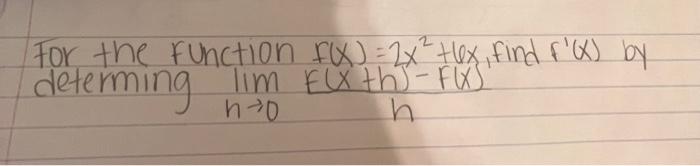 For the function f(x) = 2x² + 6x, find f'(x) by
determing lim F(x+h) - F(x)
h→0 h